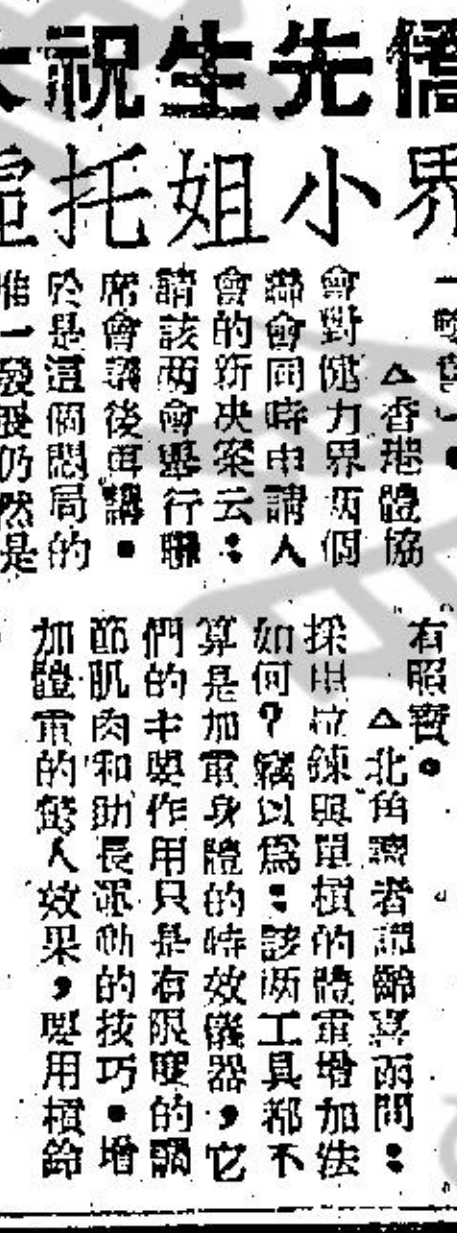 僑先生祝
界小姐托
△香港體協
會對健力界兩個
聯會同時申請入
會的新决案云：
請該兩會舉行聯
席會議後再講●
於是這個悶局的
唯一發展仍然是
有照寶●
△北角讀者譚齡喜函問：
採用拉鍊與單槓的體重增加法
如何？竊以爲：該兩工具都不
算是加重身體的特效儀器，它
們的主要作用只是有限度的調
節肌肉和助長運動的技巧●增
加體重的驚人效果，要用槓鈴